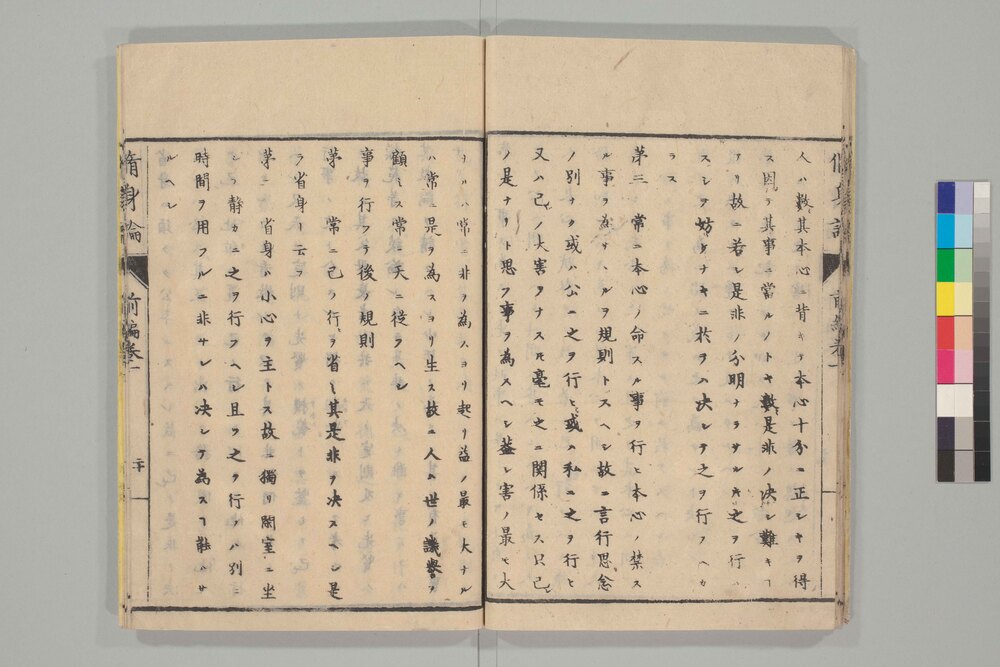 人ハ數〻其本心ニ背キテ本心十分ニ正シキヲ得
ス因テ其事ニ當ルノトキ數〻是非ノ決シ難キヿ
アリ故ニ若シ是非ノ分明ナラサルキハ之ヲ行ハ
スシテ妨ケナキニ於テハ決シテ之ヲ行フヘカ
ラス
第三　常ニ本心ノ命スル事ヲ行ヒ本心ノ禁ス
ル事ヲ為サヽルヲ規則トスヘシ故ニ言行思念
ノ別ナク或ハ公ニ之ヲ行ヒ或ハ私ニ之ヲ行ヒ
又ハ己レノ大害ヲナスモ毫モ之ニ関係セス只己レ
ノ是ナリト思フ事ヲ為スヘシ蓋シ害ノ最モ大
ナルハ常ニ非ヲ為スヨリ起リ益ノ最モ大ナル
ハ常ニ是ヲ為スヨリ生ス故ニ人ハ世ノ譏誉ヲ
顧ミス常ニ天ニ従フヘシ
事ヲ行フテ後ノ規則
第一　常ニ己レノ行ヲ省ミ其是非ヲ決スヘシ是
ヲ省身ト云フ
第二　省身ハ小心ヲ主トス故ニ獨リ閑室ニ坐
シテ静カニ之ヲ行フヘシ且ツ之ヲ行フハ別ニ
時間ヲ用フルニ非サレハ决シテ為スヿ能ハサ
ルヘシ
脩身論　前編巻一　二十